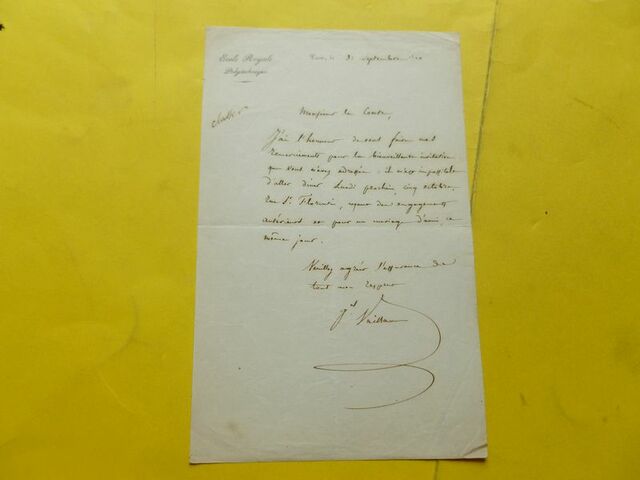 Ecole Royale
Polytechnique
Paris, le 30 Septembre
Monsieur le Comte,
J'ai l'honneur de vous faire mes
remerciements pour la bienveillante invitation
que vous m'avez adressée : il m'est impossible
d'aller diner Lundi prochain, cinq octobre,
rue St. Florentin, ayant des engagements
antérieurs et pour un mariage d'amis, ce
même jour.
Veuillez agréer l'assurance de
tout mon respect
Vaillant